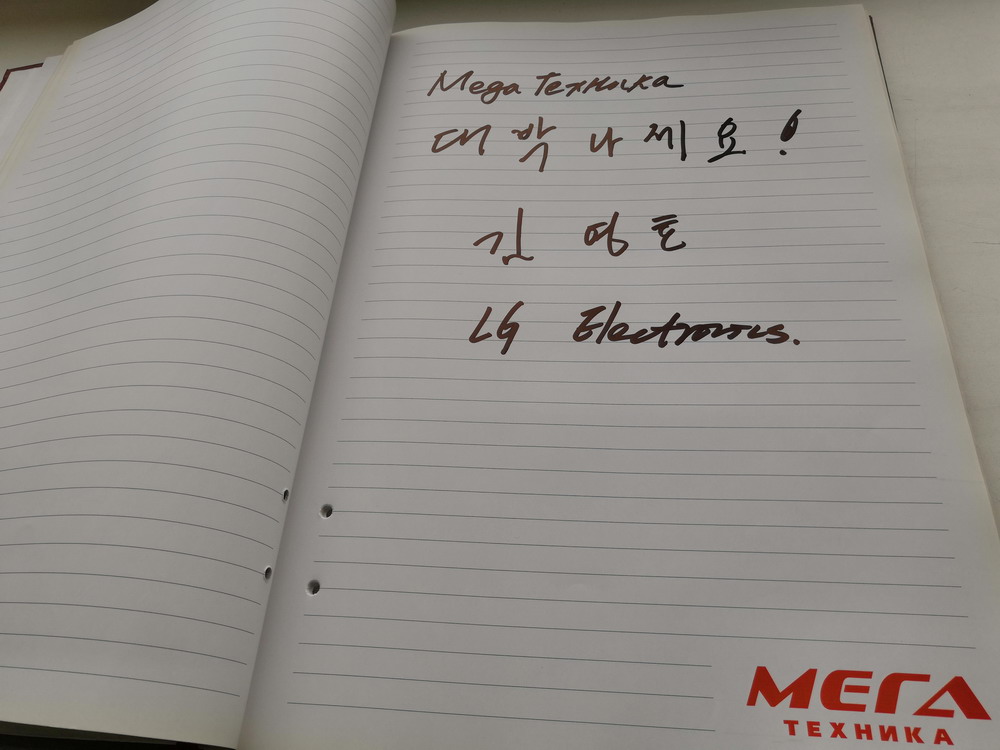 Mega Техника
대박나세요!
김영호
LG Electronics.
МЕГА
ТЕХНИКА